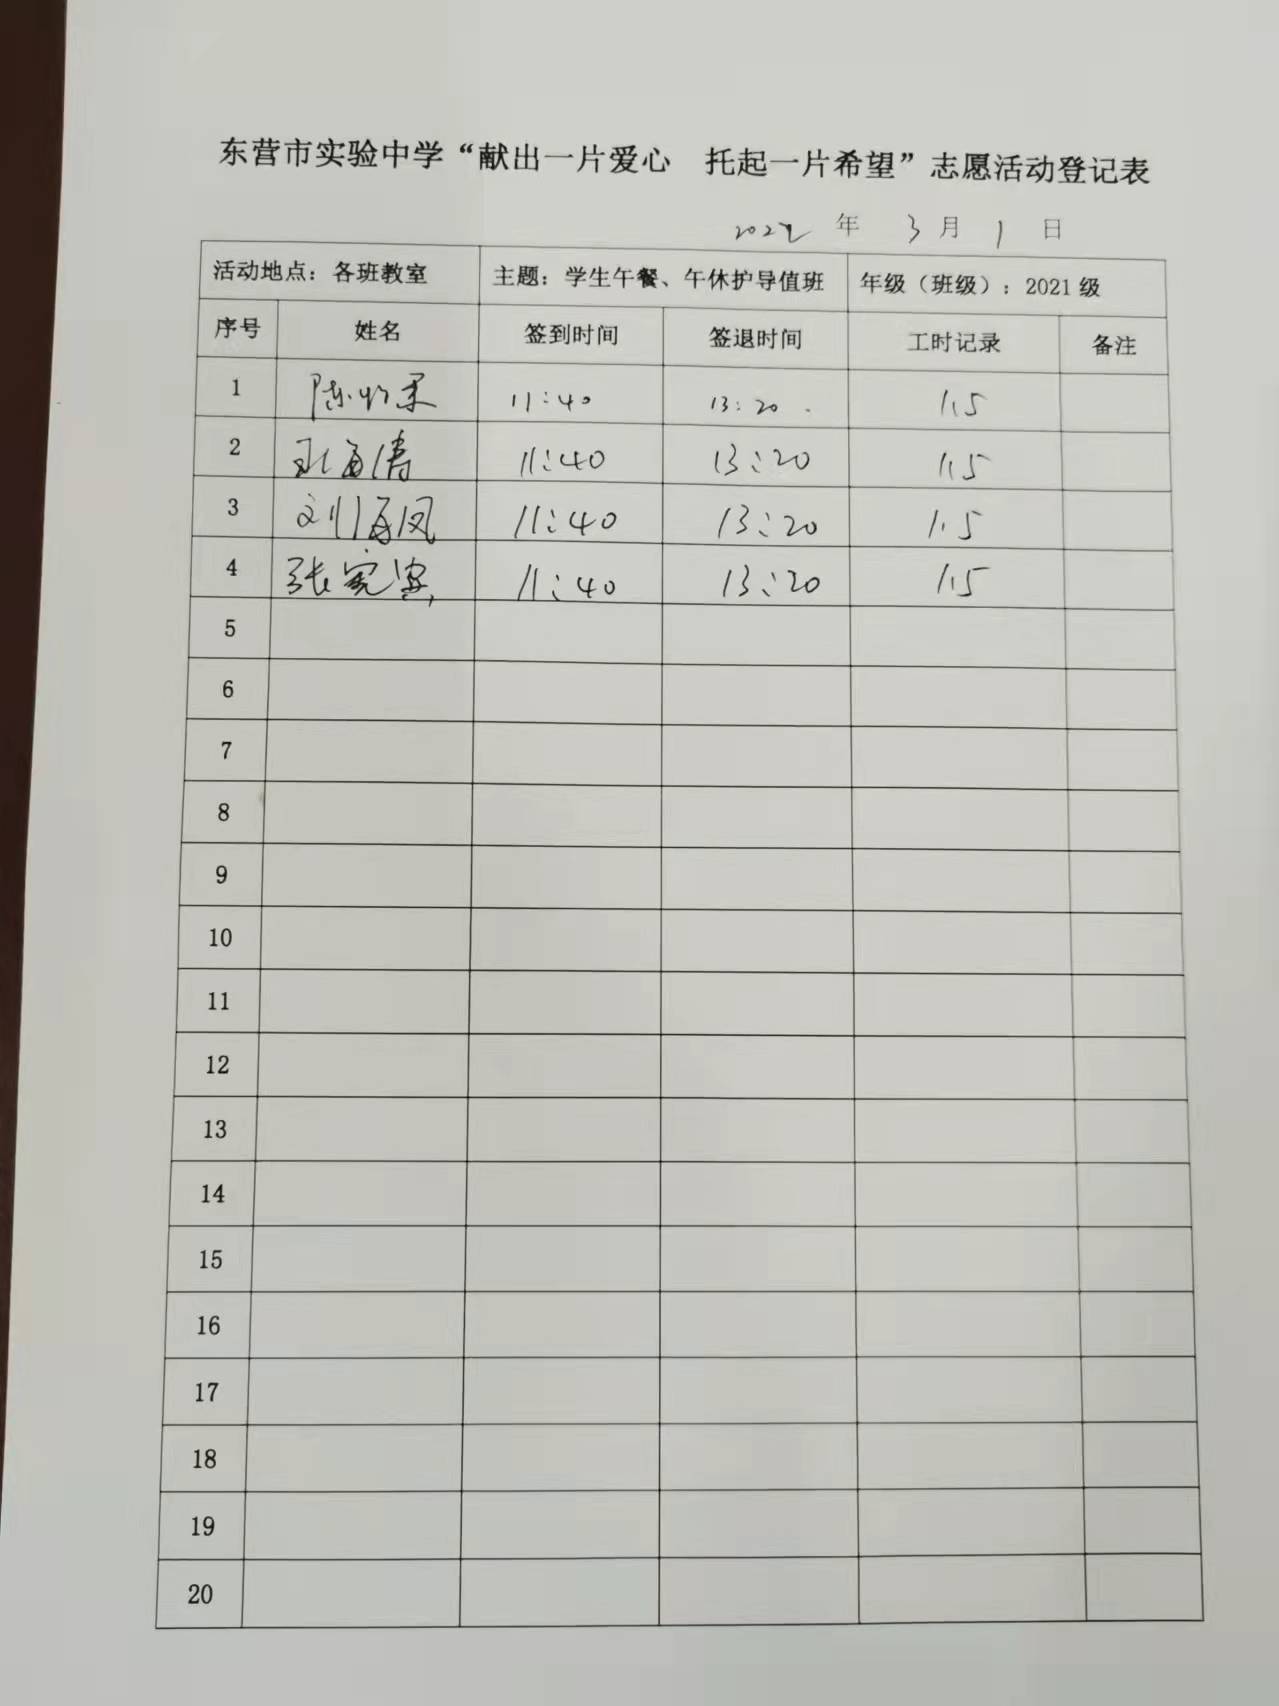 东营市实验中学“献出一片爱心 托起一片希望”志愿活动登记表
2022 年 3 月 1 日
活动地点：各班教室 主题：学生午餐、午休护导值班 年级（班级）：2021级
序号 姓名 签到时间 签退时间 工时记录 备注
1 陈 11:40 13:20 1.5
2 海涛 11:40 13:20 1.5
3 刘海凤 11:40 13:20 1.5
4 张宪 11:40 13:20 1.5
5
6
7
8
9
10
11
12
13
14
15
16
17
18
19
20